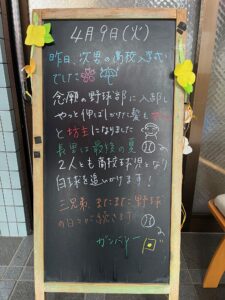 4月9日(火)
昨日、次男の高校入学式
でした
念願の野球部に入部し
やっと伸ばしかけた髪も
と坊主になりました
長男は最後の夏
2人とも高校球児となり
白球を追いかけます!
三兄弟、まだまだ野球
の日々が続きます
ガンバレー